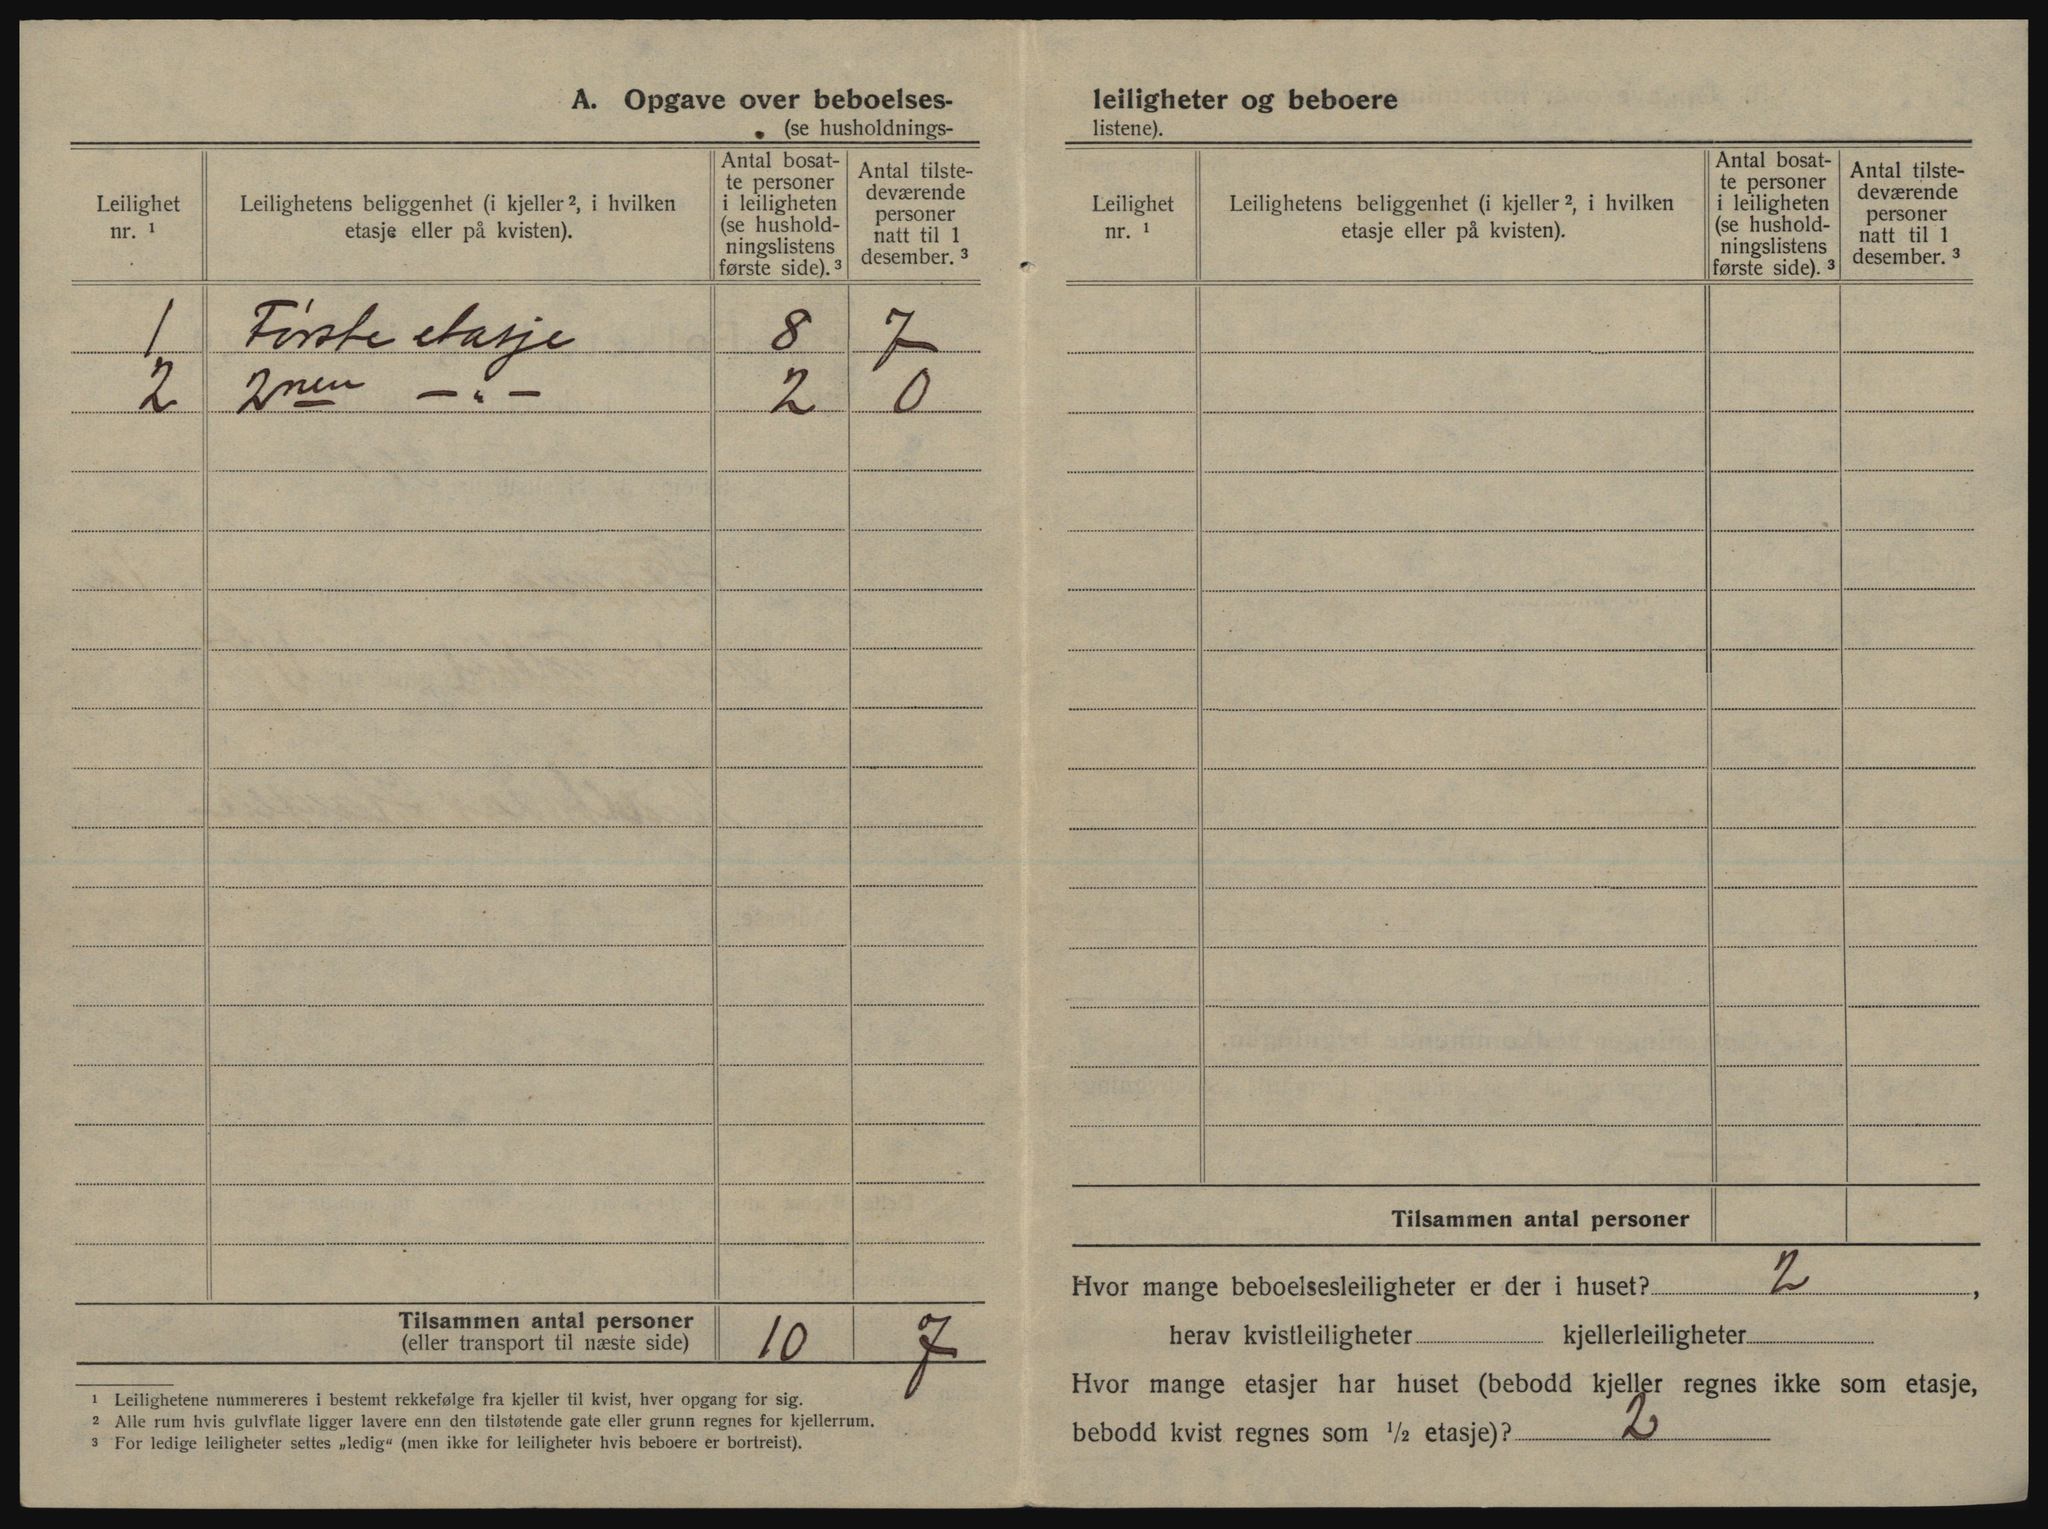 A. Opgave over beboelses-
(se husholdnings-
Leilighet
nr. ¹
Leilighetens beliggenhet (i kjeller ², i hvilken
etasje eller på kvisten).
Antal bosat-
te personer
i leiligheten
(se hushold-
ningslistens
første side). ³
Antal tilste-
deværende
personer
natt til 1
desember. ³
1 Første etasje 8 7
2 2nen —„— 2 0
Tilsammen antal personer
(eller transport til næste side)
10 7
¹ Leilighetene nummereres i bestemt rekkefølge fra kjeller til kvist, hver opgang for sig.
² Alle rum hvis gulvflate ligger lavere enn den tilstøtende gate eller grunn regnes for kjellerrum.
³ For ledige leiligheter settes „ledig“ (men ikke for leiligheter hvis beboere er bortreist).
leiligheter og beboere
listene).
Leilighet
nr. ¹
Leilighetens beliggenhet (i kjeller ², i hvilken
etasje eller på kvisten).
Antal bosat-
te personer
i leiligheten
(se hushold-
ningslistens
første side). ³
Antal tilste-
deværende
personer
natt til 1
desember. ³
Tilsammen antal personer
Hvor mange beboelsesleiligheter er der i huset? 2 ,
herav kvistleiligheter kjellerleiligheter
Hvor mange etasjer har huset (bebodd kjeller regnes ikke som etasje,
bebodd kvist regnes som ½ etasje)? 2